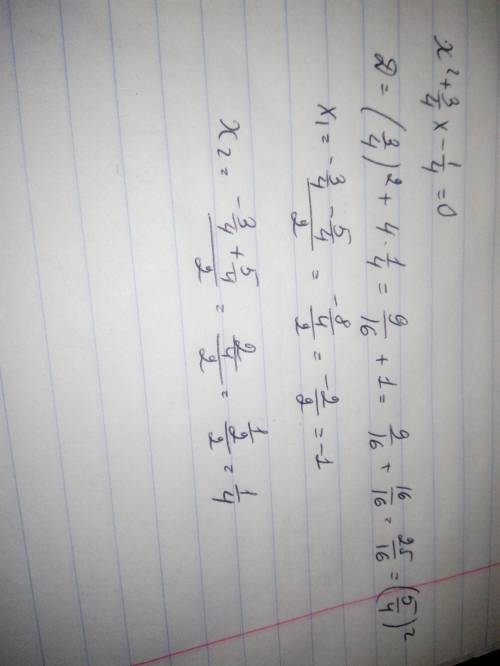 x² + 3/4 x - 1/4 = 0
D = (3/4)² + 4 · 1/4 = 9/16 + 1 = 9/16 + 16/16 = 25/16 = (5/4)²
x₁ = (-3/4 - 5/4)/2 = (-8/4)/2 = -2/2 = -1
x₂ = (-3/4 + 5/4)/2 = (2/4)/2 = (1/2)/2 = 1/4